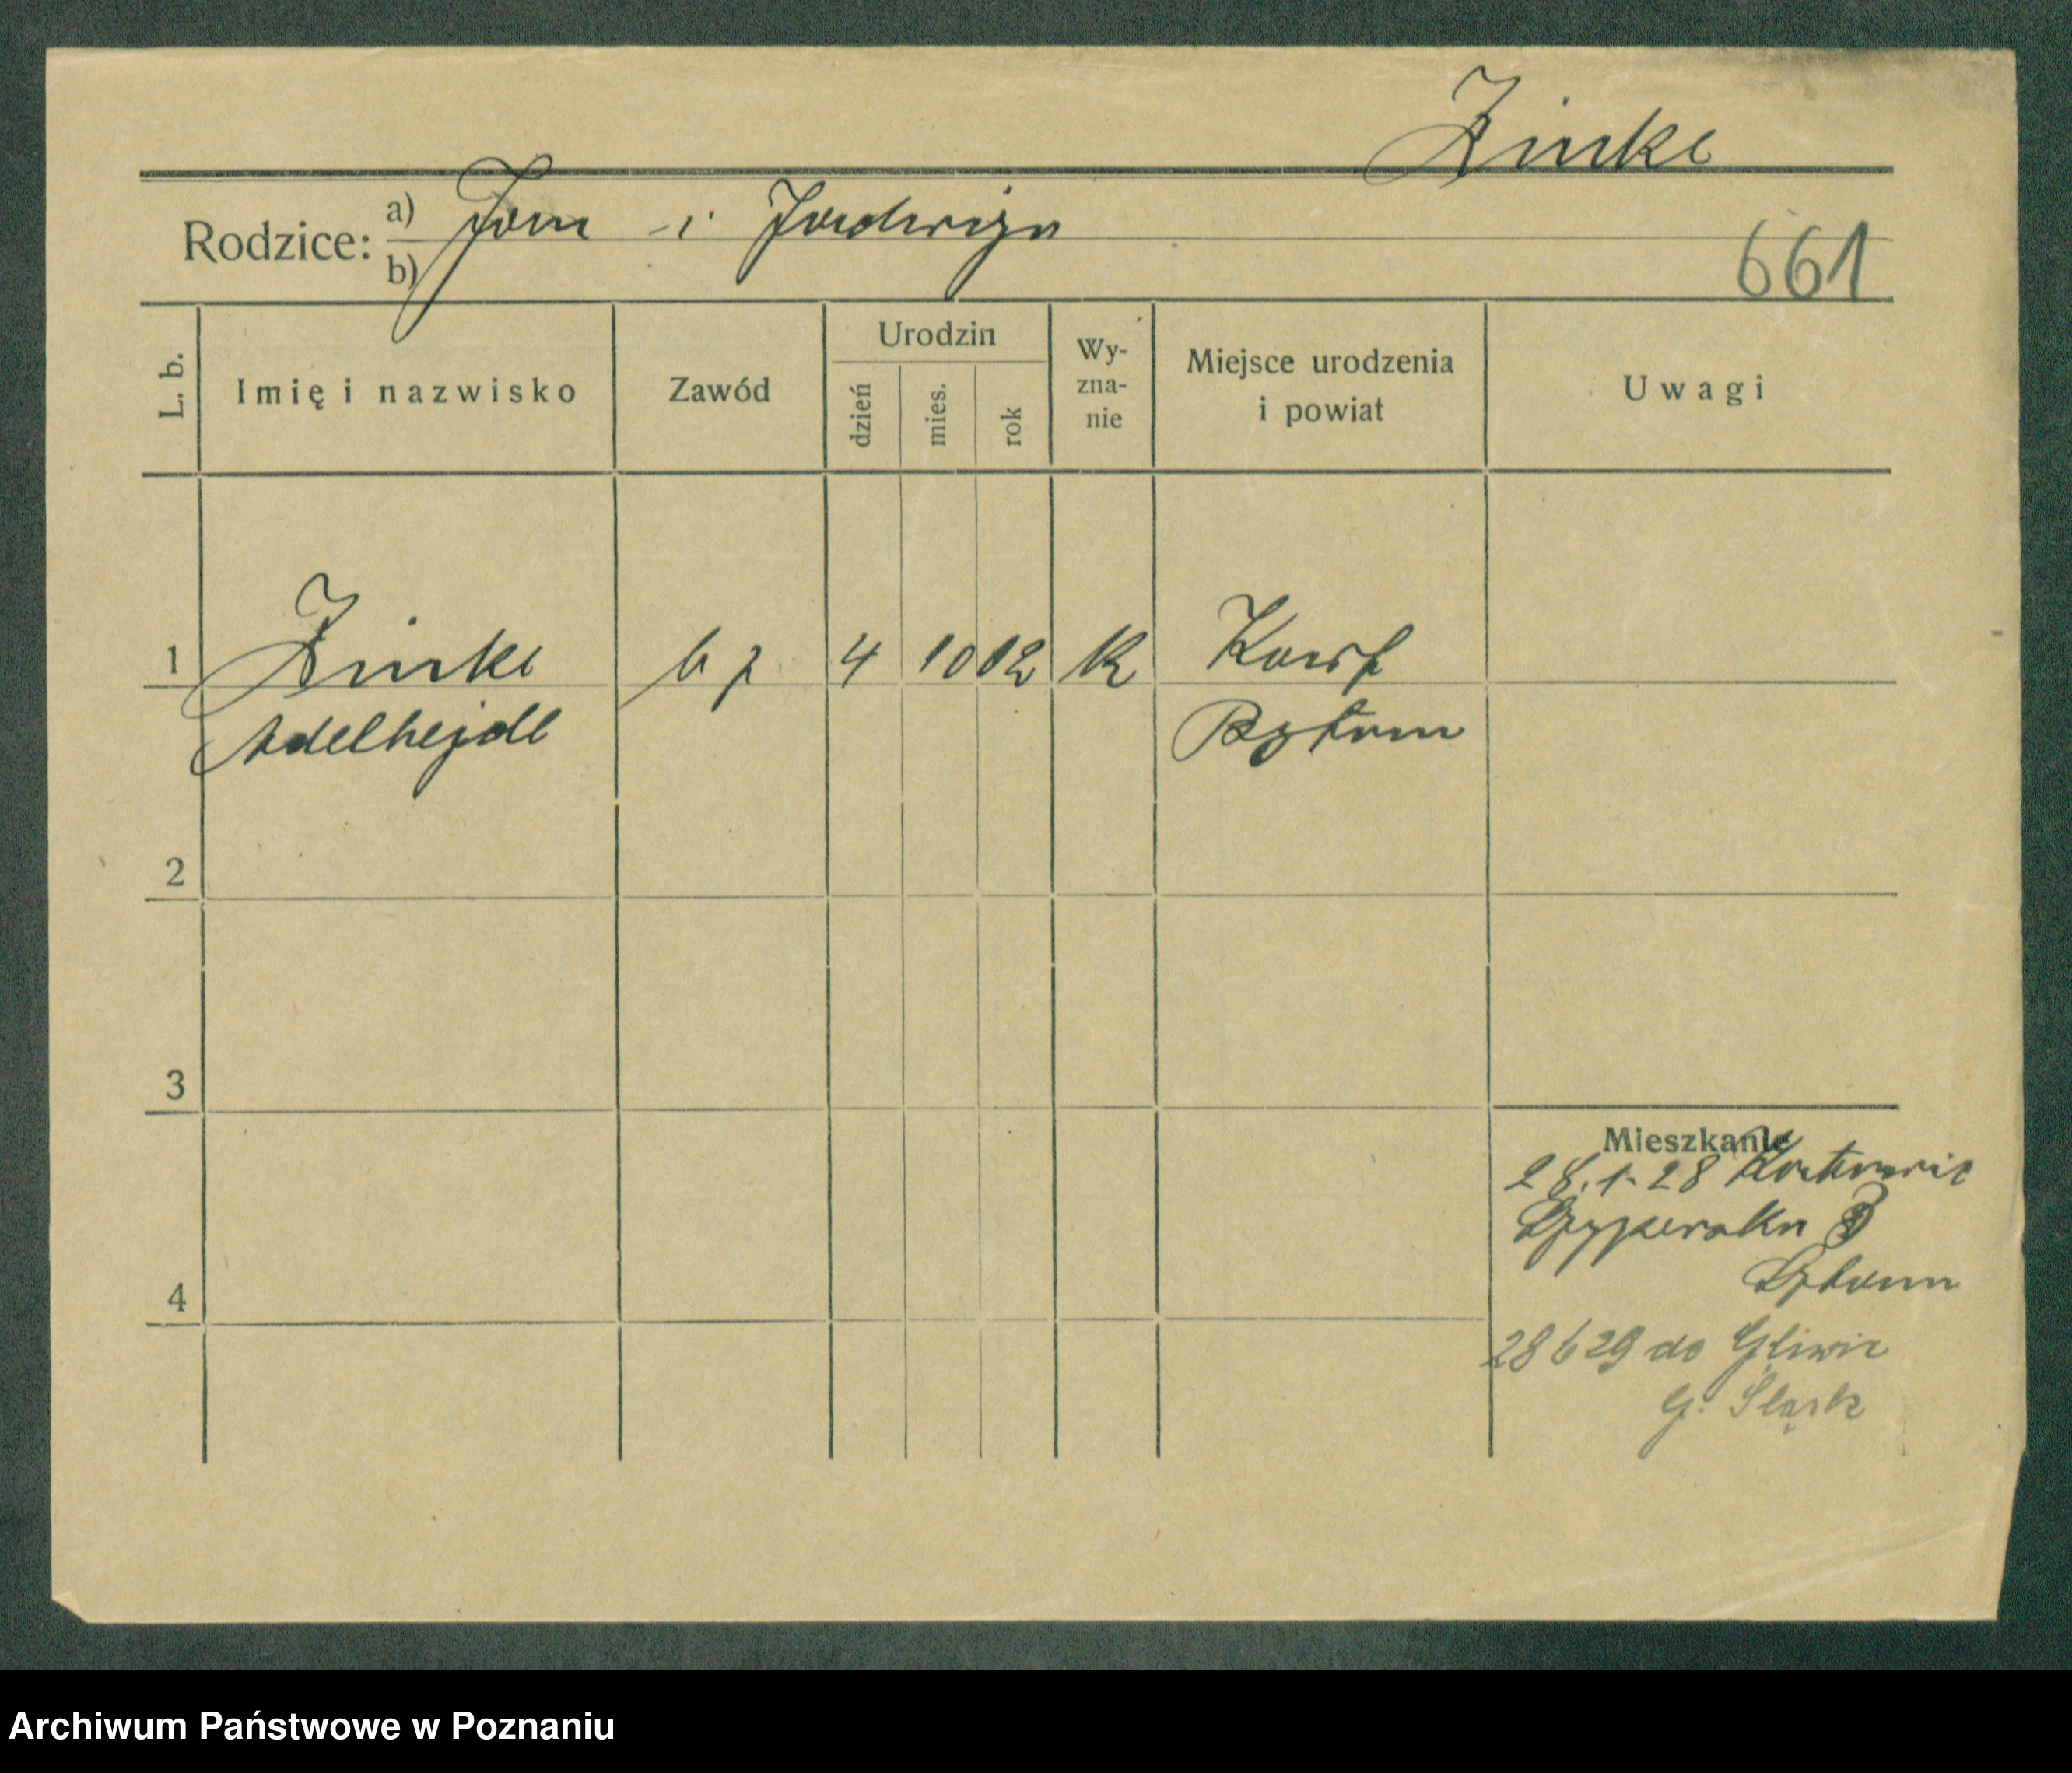 Zinke
Rodzice: a) Jan i Jadwiga
b)
661
L. b.
Imię i nazwisko
Zawód
Urodzin
dzień
mies.
rok
Wy-
zna-
nie
Miejsce urodzenia
i powiat
Uwagi
1 Zinke b z 4 10 02 K Karf
Adelhejde Bytom
2
3
4
Mieszkanie
28.1.28 Katowic
3
Bytom
28 6 29 do Gliwic
G. Śląsk
Archiwum Państwowe w Poznaniu